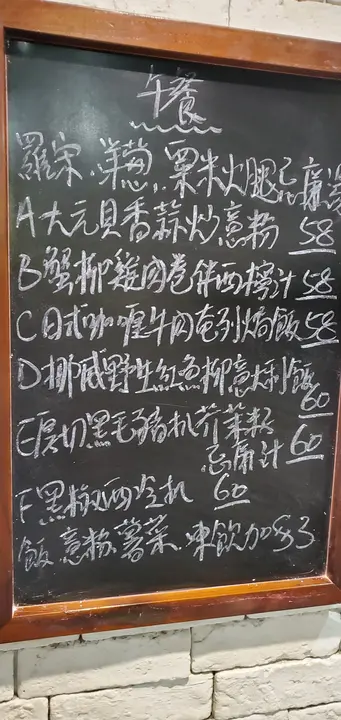 午餐
羅宋．洋葱．粟米火腿忌廉湯
A大元貝香蒜炒意粉 58
B蟹柳雞肉卷伴西檸汁 58
C日式咖喱牛肉奄列焗飯 58
D挪威野生紅魚柳意大利飯 60
E厚切黑毛豬扒芥菜籽
忌廉汁 60
F黑椒西冷扒 60
飯 意粉 薯菜 凍飲加 $3